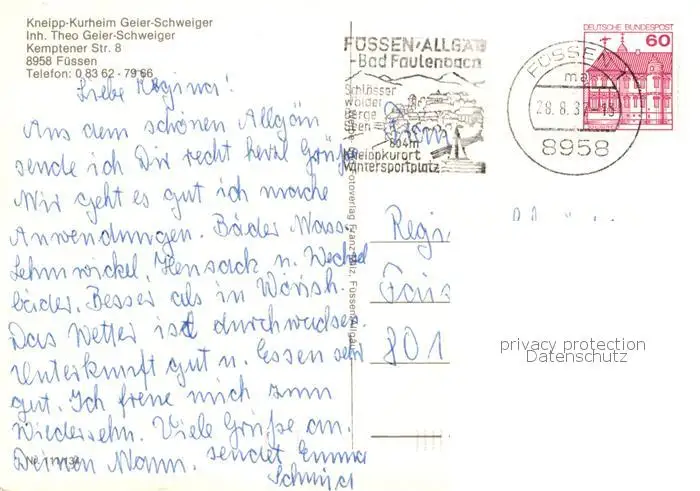 Kneipp-Kurheim Geier-Schweiger
Inh. Theo Geier-Schweiger
Kemptener Str. 8
8958 Füssen
Telefon: 0 83 62 - 79 66
Liebe Regina!
Aus dem schönen Allgäu
sende ich Dir recht herzl Grüße
Mir geht es gut ich mache
Anwendungen. Bäder Mass.
Lehmwickel, Heusack u. Wechsel
bäder. Besser als in Wörish.
Das Wetter ist durchwachsen.
Unterkunft gut u. Essen sehr
gut. Ich freue mich zum
Wiedersehn. Viele Grüße an
Deinen Mann. sendet Emma
Schmid
Nr. 111/134
FÜSSEN/ALLGÄU
-Bad Faulenbach
Schlösser
Wälder
Berge
Seen
804m
Kneippkurort
Wintersportplatz
DEUTSCHE BUNDESPOST
60
FÜSSEN 1
ma
28.8.87-18
8958
Fotoverlag Franz Milz, Füssen/Allgäu
Regi
801
privacy protection
Datenschutz